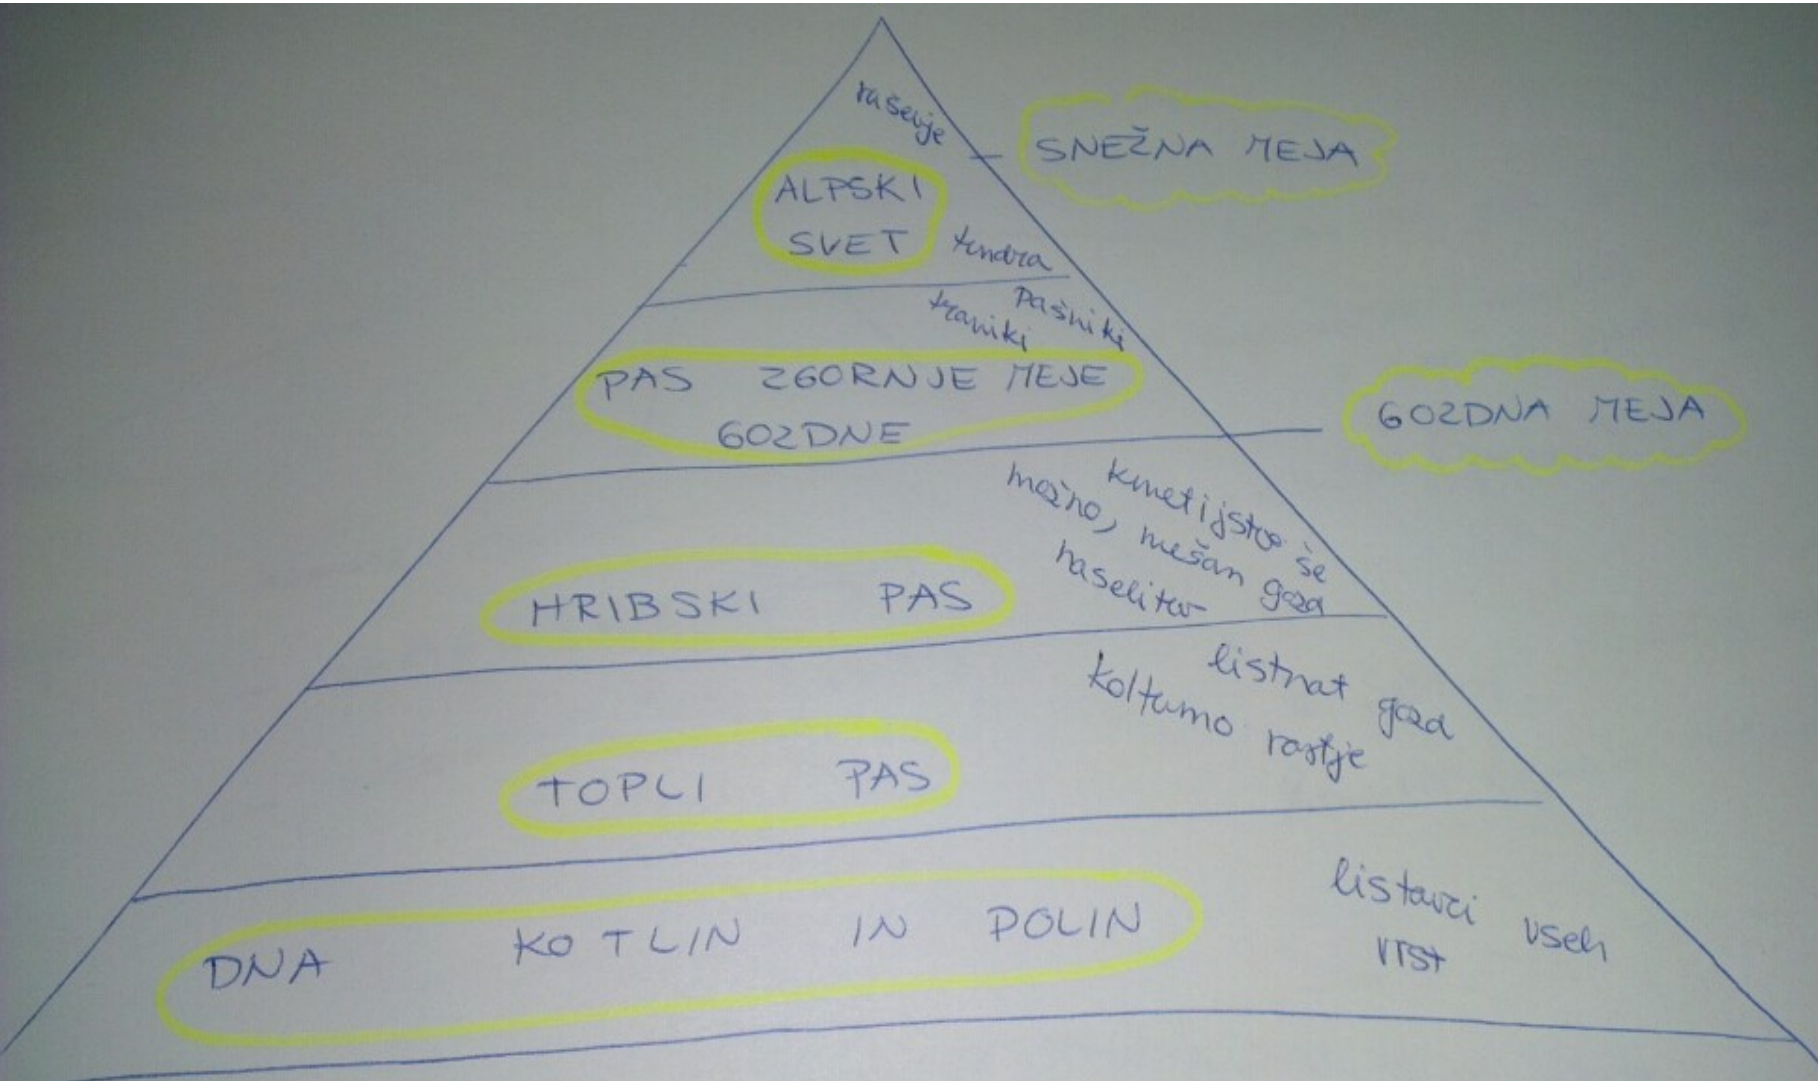 ruševje
SNEŽNA MEJA
ALPSKI
SVET
tundra
pašniki
travniki
PAS ZGORNJE MEJE
GOZDNE
GOZDNA MEJA
kmetijstvo še
možno, mešan gozd
naselitev
HRIBSKI PAS
listnat gozd
kolturno rastje
TOPLI PAS
listavci vseh
vrst
DNA KOTLIN IN POLIN